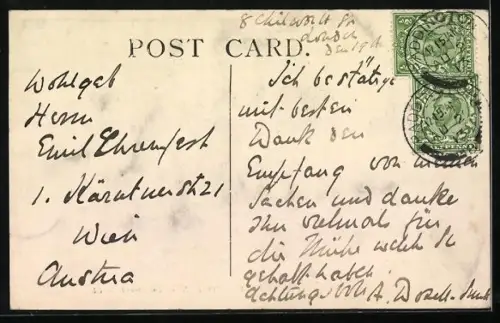 8 Chilworth St
London
POST CARD.
Wohlgeb
Herrn
Emil Ehrenfest
1. Kärntnerstr 21
Wien
Austria
Ich bestätige
mit besten
Dank den
Empfang von meinen
Sachen und danke
Ihn vielmals für
die Mühe welch Sie
gehabt haben.
Achtungsvoll A.